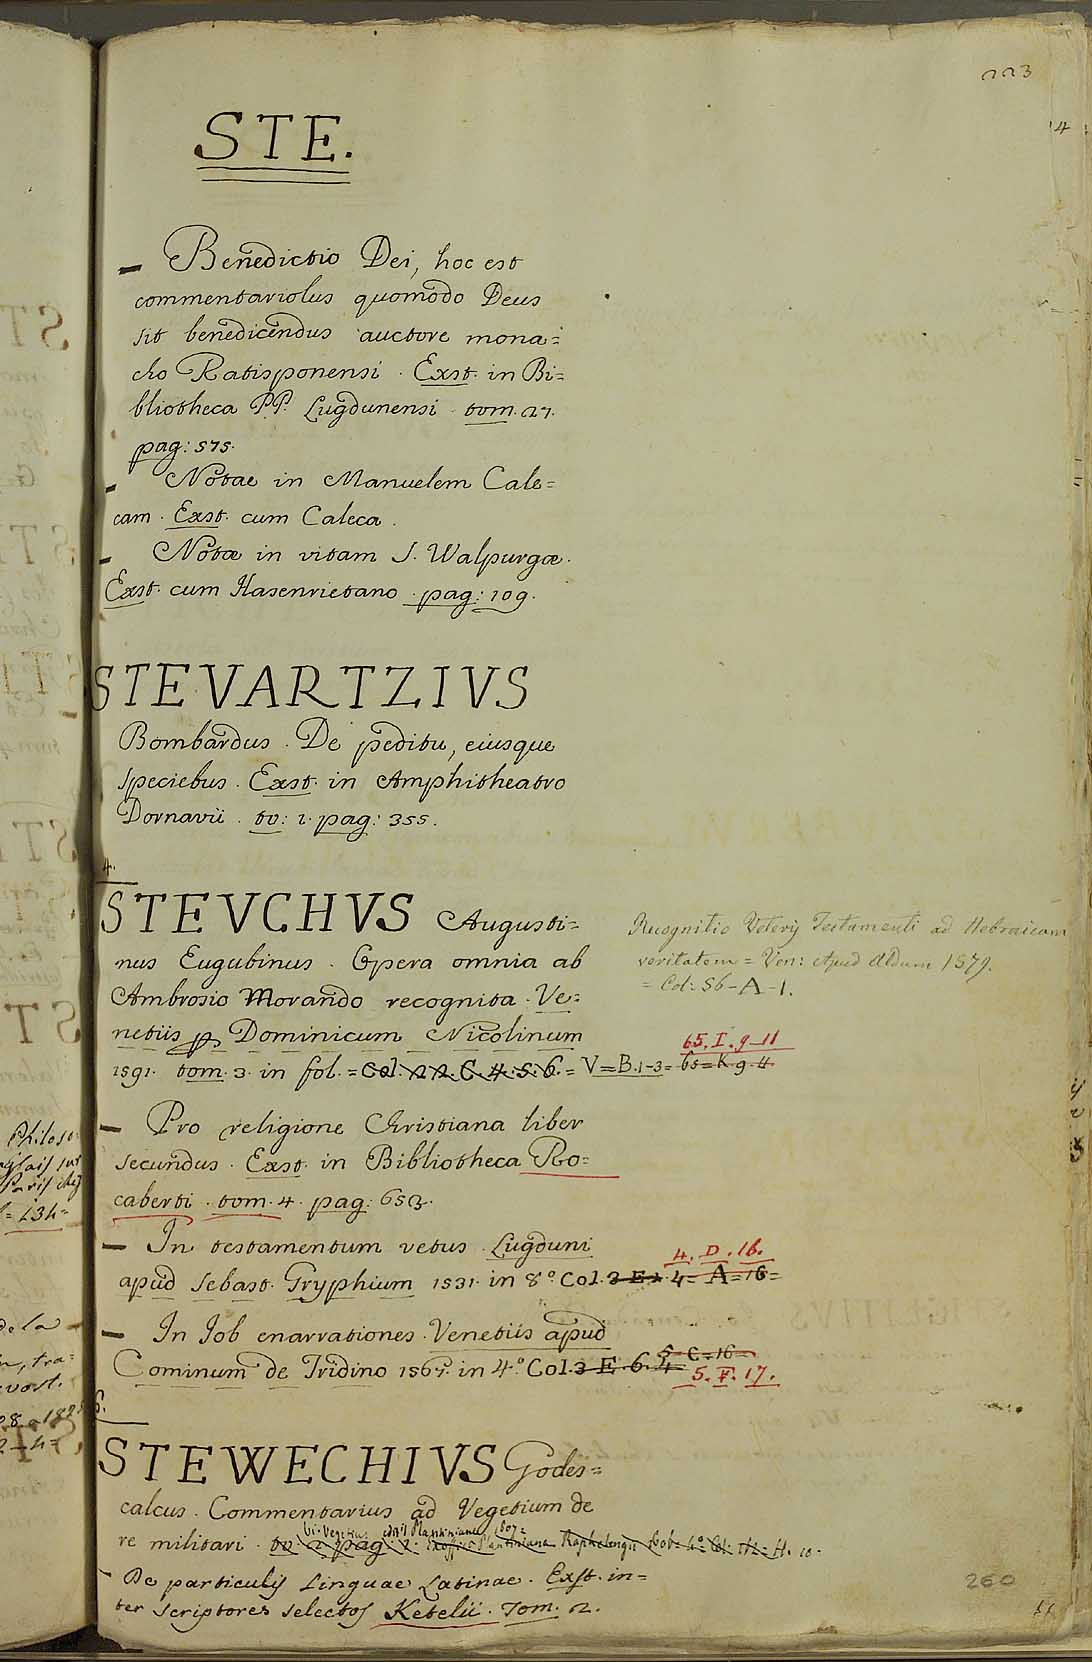 223
STE.
– Benedictio Dei, hoc est
commentariolus quomodo Deus
sit benedicendus auctore mona=
cho Ratisponensi. Exst. in Bi=
bliotheca P.P. Lugdunensi tom. 27.
pag: 575.
– Notae in Manuelem Cale=
cam. Exst. cum Caleca.
– Notæ in vitam S. Walpurgæ.
Exst. cum Hasenrietano. pag: 109.
STEVARTZIVS
Bombardus. De peditu, eiusque
speciebus. Exst. in Amphitheatro
Dornavii. to: 1. pag: 355.
4.
STEVCHVS Augusti=
nus Eugubinus. Opera omnia ab
Ambrosio Morando recognita. Ve=
netiis p. Dominicum Nicolinum
1591. tom. 3. in fol. = Col. 22. C. 4. 5. 6. = V=B.1-3= 65=K 9 11
65. I. 9-11
Recognitio Veteris Testamenti ad Hebraicam
veritatem = Ven: Apud Aldum 1529.
= Col: 56-A-1.
– Pro religione Christiana liber
secundus. Exst. in Bibliotheca Ro=
caberti. tom. 4. pag: 652.
– In testamentum vetus. Lugduni
apud Sebast. Gryphium 1531. in 8º Col. 4=A=16=
4. D. 16.
– In Iob enarrationes. Venetiis apud
Cominum de Tridino 1567. in 4º Col. 3 E 6.
5=C=16=
5. F. 17.
6.
STEWECHIVS Godes=
calcus. Commentarius ad Vegetium de
re militari. to: 2. pag: 2.
– De particulis Linguae Latinae. Exst. in=
ter scriptores selectos Ketelii. Tom. 2.
260